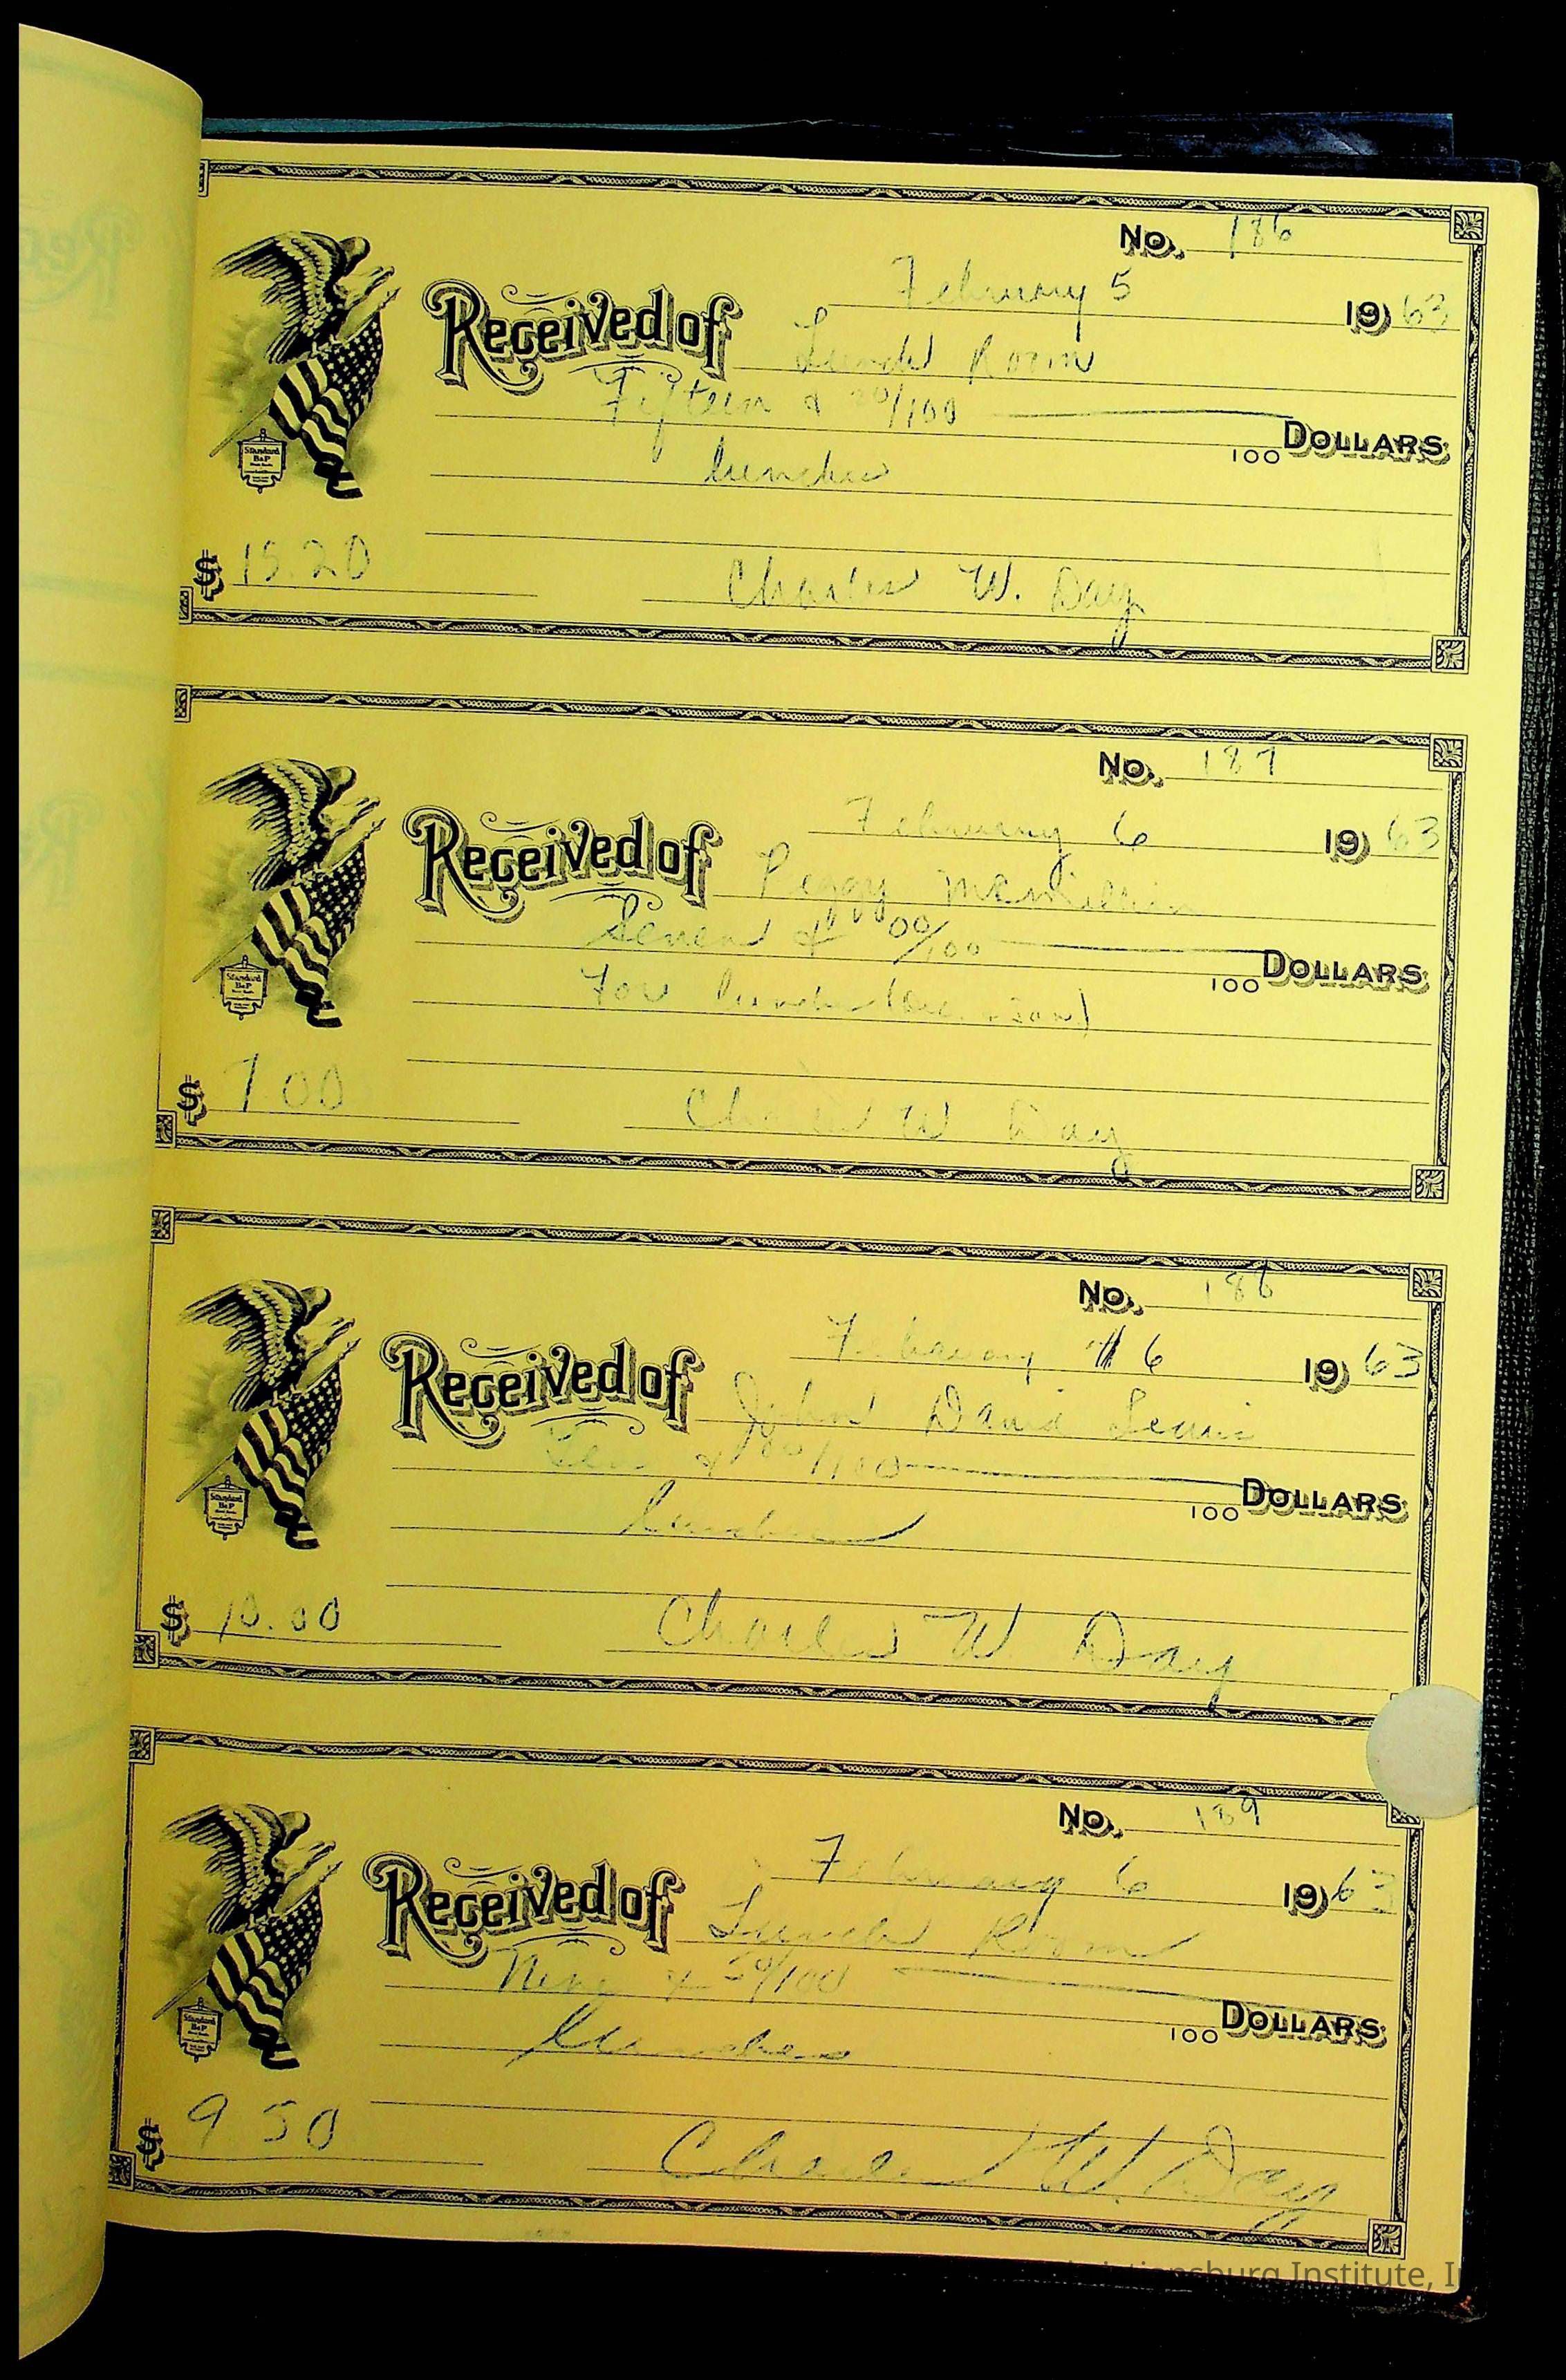 No. 186
February 5 1963
Received of Lunch Room
Fifteen & 20/100
100 DOLLARS
lunches
Standard
B&P
$ 15.20 Charles W. Day
No. 187
February 6 1963
Received of Peggy
Seven & 00/100
100 DOLLARS
For lunch
Standard
B&P
$ 7.00 Charles W Day
No. 188
February 6 1963
Received of John David Lewis
Ten & 00/100
100 DOLLARS
lunches
Standard
B&P
$ 10.00 Charles W. Day
No. 189
February 6 1963
Received of Lunch Room
Nine & 50/100
100 DOLLARS
lunches
Standard
B&P
$ 9 50 Charles W. Day
Institute,